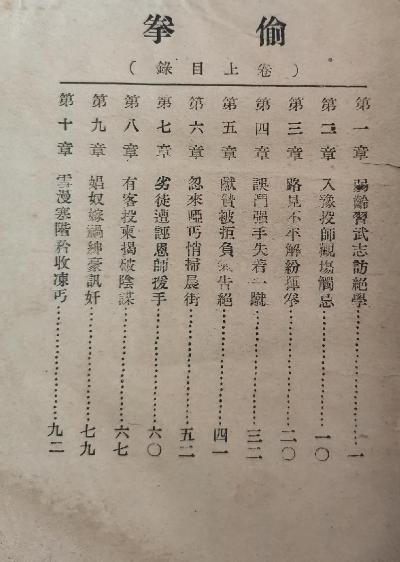 偷拳
（卷上目錄）
第一章 弱齡習武志訪絕學…………一
第二章 入豫投師觀場觸忌…………一〇
第三章 路見不平解紛揮拳…………二〇
第四章 誤鬥强手失着一蹴…………三二
第五章 獻贄被拒負氣告絕…………四一
第六章 忽來啞丐悄掃晨街…………五二
第七章 劣徒遭誣恩師援手…………六〇
第八章 有客投柬揭破陰謀…………六七
第九章 娼奴嫁禍紳豪訊奸…………七九
第十章 雪漫寒階矜收凍丐…………九二